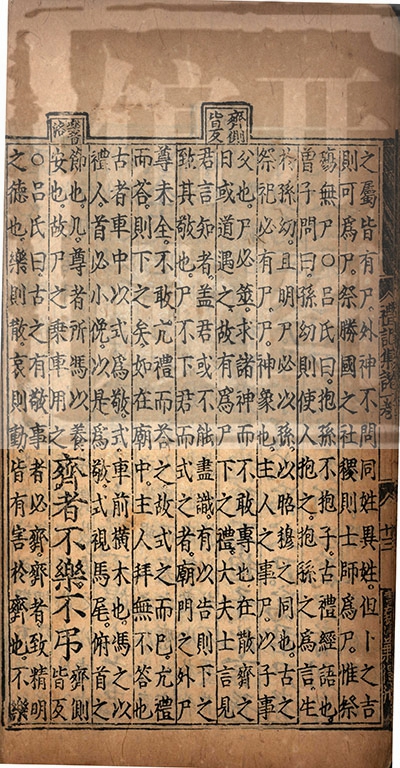 之屬皆有尸。外神不問同姓異姓。但卜之吉
則可爲尸。祭勝國之社稷則士師爲尸。惟祭
殤無尸○呂氏曰。抱孫不抱子。古禮經語也
曾子問曰。孫幼則使人抱之。抱孫之爲言。生
於孫幼。且明尸必以孫。以昭穆之同也。古之
祭祀必有尸。尸神象也。主人之事尸。以子事
父也。尸必筮。求諸神而不敢專也。在散齊之
日。或道遇之。故有爲尸下之禮。大夫士言見
君言知者。蓋君或不能盡識。有以告則下之
致其敬也。尸不下君而式之者。廟門之外。尸
尊未全。不敢亢禮而荅之。故式之而已。亢禮
而荅。則下之矣。如在廟中。主人拜無不荅也
古者車中以式爲敬。式。車前横木也。馮之以
禮人。首必小俛。以是爲敬。式視馬尾。俯首之
節也。几。尊者所馮以養
安也。故尸之乘車用之
齊者不樂不弔
齊側
皆反
○呂氏曰。古之有敬事者必齊。齊者致精明
之德也。樂則散。哀則動。皆有害於齊也。不樂
齊側
皆反
禮記集說
十三